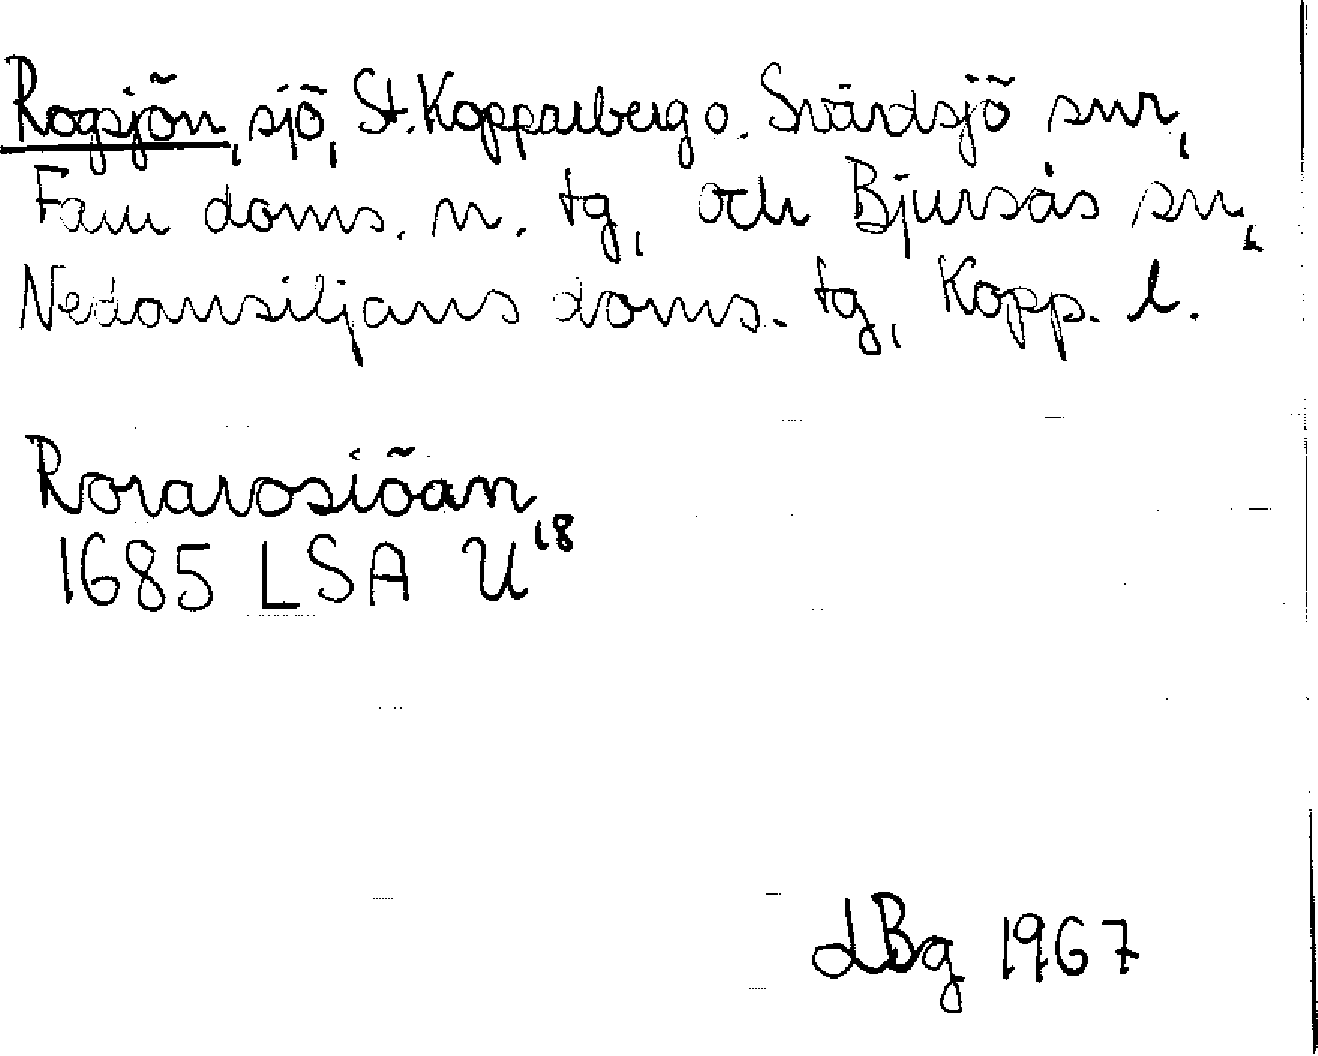 Rogsjön, sjö, St. Kopparberg o. Svärdsjö snr,
Falu doms. n. tg, och Bjursås sn,
Nedansiljans doms. tg, Kopp. l.
Rorarosiöan
1685 LSA U 18
LBg 1967